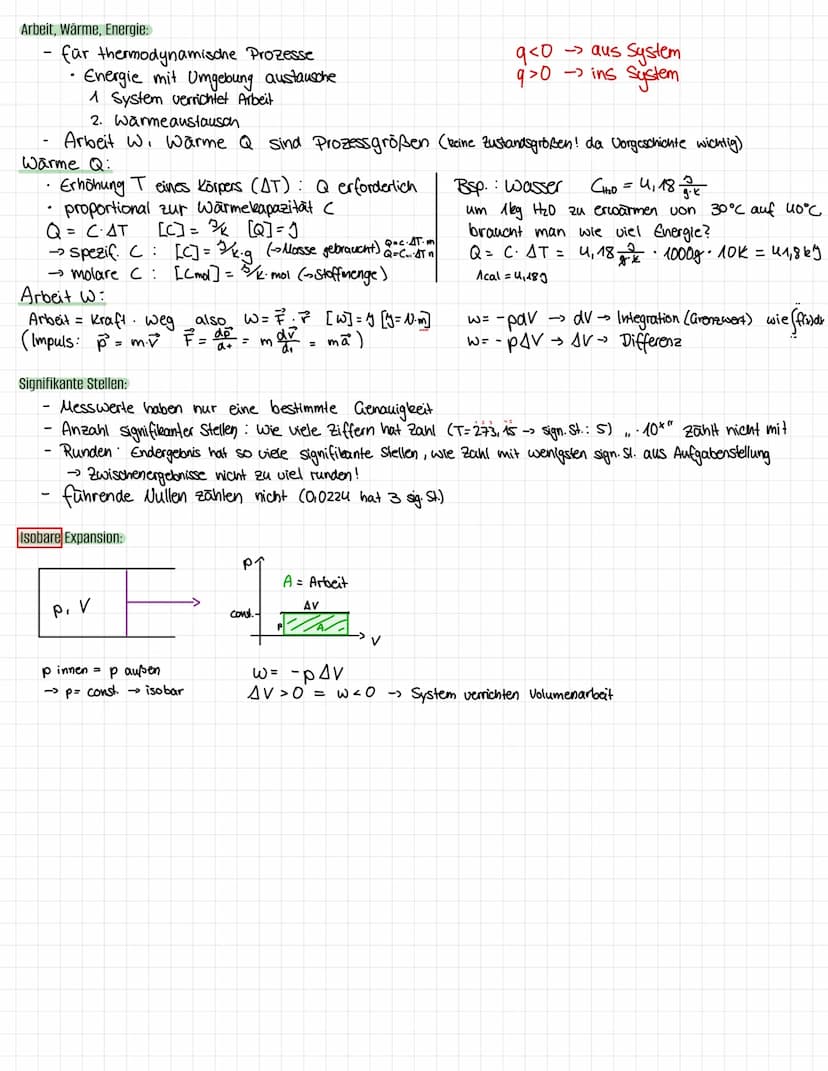 Arbeit, Wärme, Energie:
- für thermodynamische Prozesse
· Energie mit Umgebung austausche
1 System verrichtet Arbeit
2. Wärmeaustausch
q<0 → aus System
q>0 → ins System
- Arbeit W, Wärme Q sind Prozessgrößen (keine Zustandsgrößen! da Vorgeschichte wichtig)
Wärme Q:
· Erhöhung T eines Körpers (ΔT): Q erforderlich
· proportional zur Wärmekapazität C
Q = C·ΔT [C] = J/K [Q] = J
→ spezif. C: [C] = J/K·g (→Masse gebraucht) Q=c·ΔT·m
→ molare C: [Cmol] = J/K·mol (→Stoffmenge)
Bsp.: Wasser C_H2O = 4,18 J/g·K
um 1kg H2O zu erwärmen von 30°C auf 40°C
braucht man wie viel Energie?
Q = C·ΔT = 4,18 J/g·K · 1000g · 10K = 41,8 kJ
1cal = 4,18J
Arbeit W:
Arbeit = Kraft · Weg also W = F⃗ · r⃗ [W] = J [J = N·m]
(Impuls: p⃗ = m·v⃗ F⃗ = dp⃗/dt = m dv⃗/dt = ma⃗)
w = -pdV → dV → Integration (Grenzwert) wie ∫f(x)dx
w = -pΔV → ΔV → Differenz
Signifikante Stellen:
- Messwerte haben nur eine bestimmte Genauigkeit
- Anzahl signifikanter Stellen: wie viele Ziffern hat Zahl (T=273,15 → sign. St.: 5) „·10^x" zählt nicht mit
- Runden: Endergebnis hat so viele signifikante Stellen, wie Zahl mit wenigsten sign. St. aus Aufgabenstellung
→ Zwischenergebnisse nicht zu viel runden!
- führende Nullen zählen nicht (0,0224 hat 3 sig. St.)
Isobare Expansion:
p, V
p
A = Arbeit
ΔV
const.
p
A
V
p innen = p außen
→ p = const. → isobar
w = -pΔV
ΔV > 0 = w < 0 → System verrichten Volumenarbeit